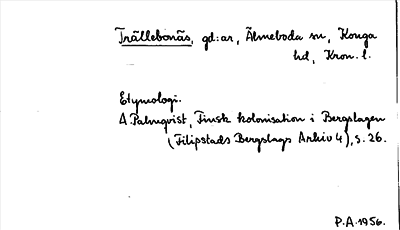 Trällebonäs, gd:ar, Älmeboda sn, Konga
hd, Kron. l.
Etymologi.
A Palmqvist, Finsk kolonisation i Bergslagen
(Filipstads Bergslags Arkiv 4), s. 26.
P.A. 1956.